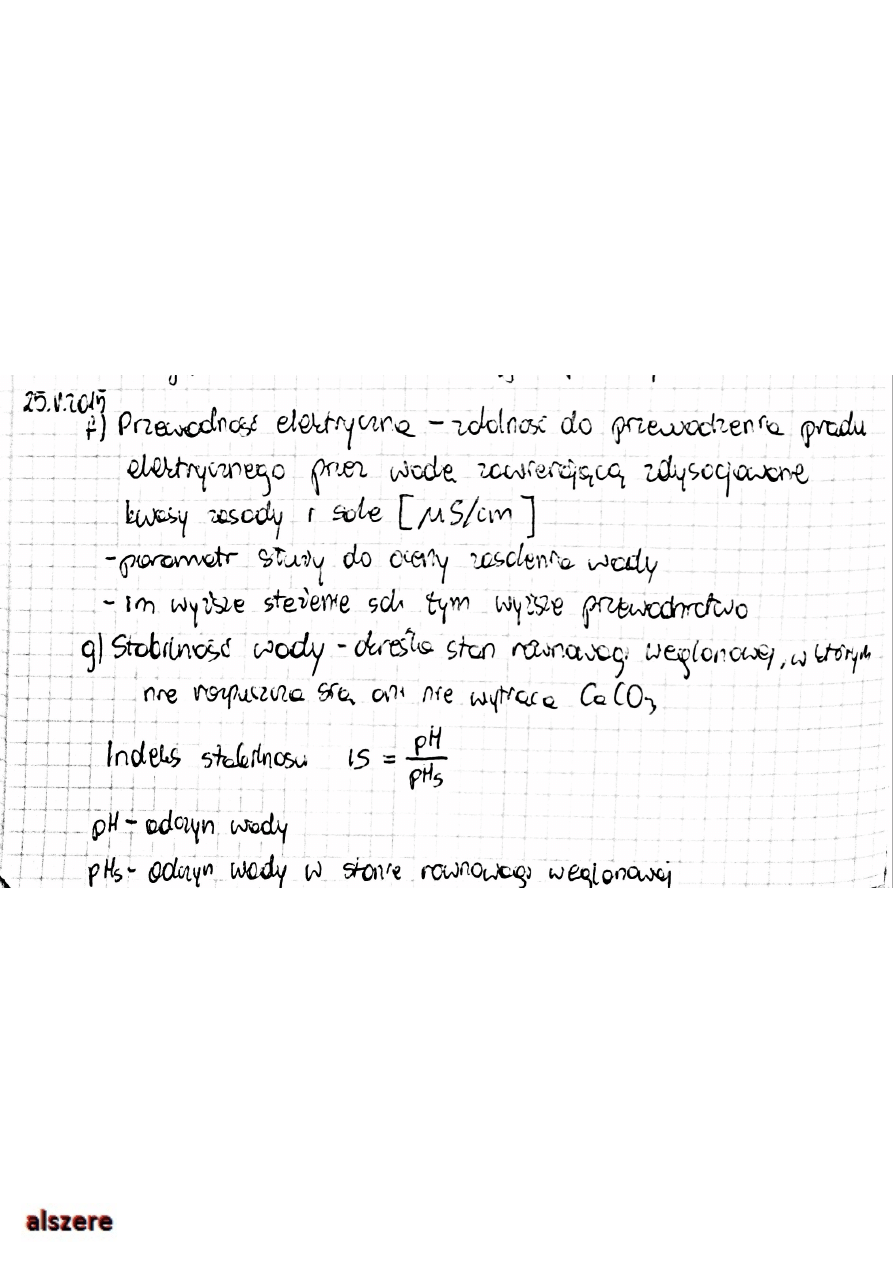 25.V.2015
f) Przewodność elektryczna – zdolność do przewodzenia prądu
elektrycznego przez wodę zawierającą zdysocjowane
kwasy zasady i sole [μS/cm]
- parametr służy do oceny zasolenia wody
- im wyższe stężenie soli tym wyższe przewodnictwo
g) Stabilność wody - określa stan równowagi węglanowej, w którym
nie rozpuszcza się, ani nie wytrąca CaCO3
Indeks stabilności IS = pH / pHs
pH – odczyn wody
pHs - odczyn wody w stanie równowagi węglanowej
alszere